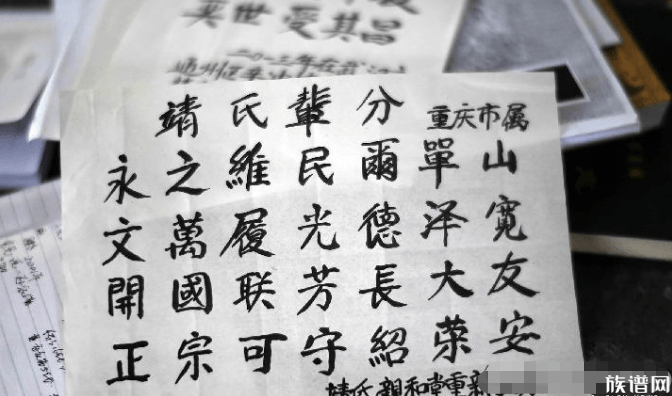 世受其昌
二〇一三年在
靖氏輩分 重庆市属
永之維民爾單山
文萬履光德泽寬
開國联芳長大友
正宗可守紹荣安
靖氏親和堂重新
族谱网